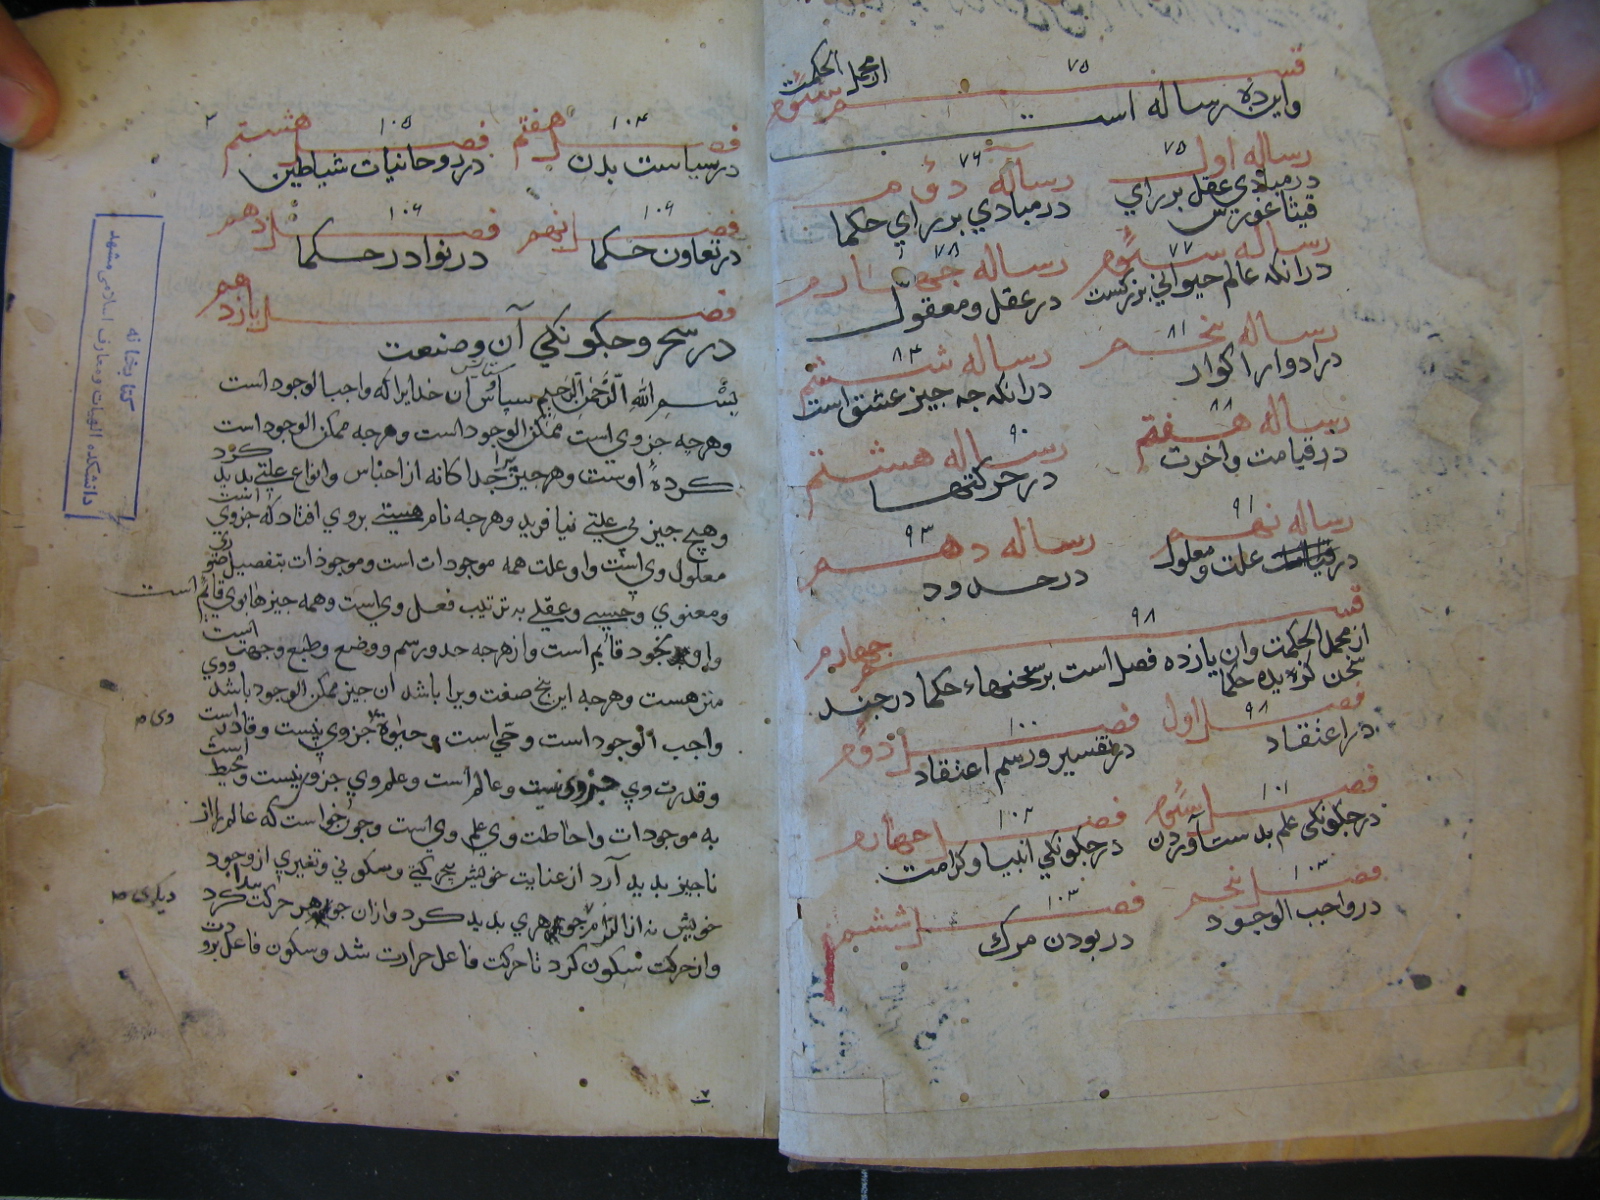 ۷۵
قسم سوم از مجمل الحکمت
واین ده رساله است
رساله اول ۷۵
در مبادی عقل بر رای
فیثاغورس
رساله دوم ۷۶
در مبادی بر رای حکما
رساله سوم ۷۷
در انکه عالم حیوانی بزرکست
رساله چهارم ۷۸
در عقل و معقول
رساله پنجم ۸۱
در ادوار اکوار
رساله ششم ۸۴
در انکه چه چیز عشق است
رساله هفتم ۸۸
در قیامت واخرت
رساله هشتم ۹۰
در حرکتها
رساله نهم ۹۱
در علت و معلول
رساله دهم ۹۳
در حدود
قسم چهارم ۹۸
از مجمل الحکمت وان یازده فصل است بر سخنهاء حکما در چند
سخن کزیده حکما
فصل اول ۹۸
در اعتقاد
فصل دوم ۱۰۰
در تفسیر ورسم اعتقاد
فصل سوم ۱۰۱
در چکونکی علم بدست آوردن
فصل چهارم ۱۰۲
در چکونکی انبیا وکرامت
فصل پنجم ۱۰۳
در واجب الوجود
فصل ششم ۱۰۳
در بودن مرک
۲
فصل هفتم ۱۰۴
در سیاست بدن
فصل هشتم ۱۰۵
در روحانیات شیاطین
فصل نهم ۱۰۶
در تعاون حکما
فصل دهم ۱۰۶
در نوادر حکما
فصل یازدهم
در سحر وچکونکی آن وصنعت
بسم الله الرحمن الرحیم سپاس آن خدایرا که واجب الوجود است
وهرچه جز وی است ممکن الوجود است وهرچه ممکن الوجود است
کرده اوست وهر چیز را جداکانه از اجناس وانواع علتی بدید کرد
وهیچ چیز بی علتی نیافرید وهرچه نام هستی بروی افتاد که جز وی است
معلول وی است واو علت همه موجودات است وموجودات بتفصیل صوری
ومعنوی وحسی وعقلی به ترتیب فعل وی است وهمه چیزها بوی قائم است
واو بخود قایم است واز هرچه حد ورسم ووضع وطبع وجهت است
منزهست وهرچه این پنج صفت ویرا باشد ان چیز ممکن الوجود باشد ووی
واجب الوجود است وحی است وحیوة جز وی نیست وقادر است
وقدرت وی جز وی نیست وعالم است وعلم وی جز وی نیست ومحیط است
به موجودات واحاطت وی علم وی است وچون خواست که عالم را از
ناچیز بدید آرد از عنایت خویش بی حرکتی وسکونی وتغیری از وجود
خویش نه از الزام جوهری بدید کرد وازان جوهر حرکت پیدا کرد
واز حرکت سکون کرد تا حرکت فاعل حرارت شد وسکون فاعل برودت
وی م
دیکری م
کتابخانه
دانشکده الهیات ومعارف اسلامی مشهد
۷